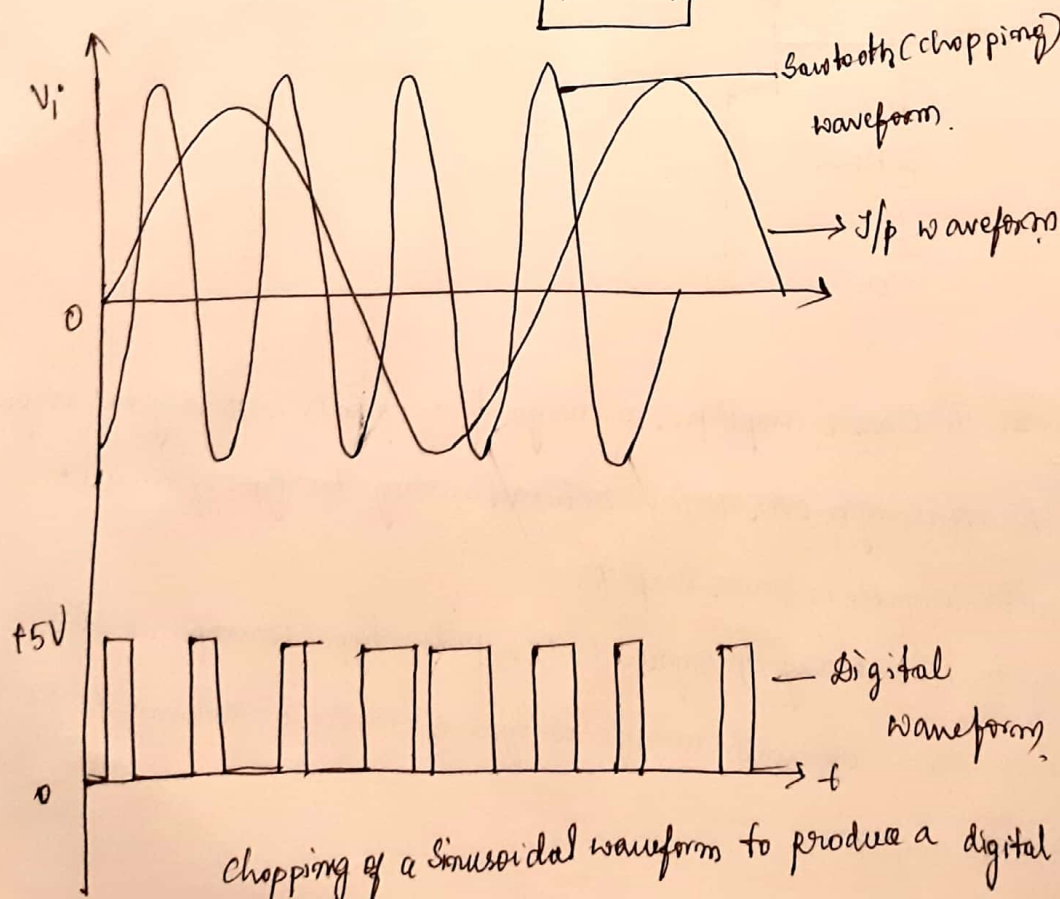 Sawtooth (chopping)
waveform.
Vi
I/p waveform.
0
+5V
Digital
waveform.
0
t
Chopping of a Sinusoidal waveform to produce a digital